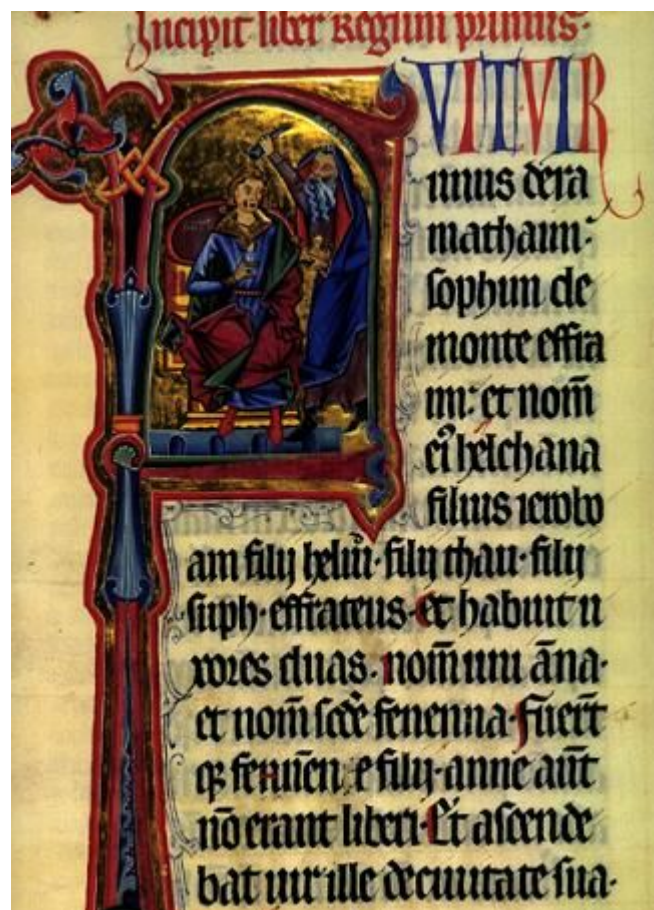 Incipit liber Regum primus·
VIT·VIR
unus de ra
mathaim·
sophim de
monte effra
im· et nom̄
ei᾽ helchana
filius ierobo
am filij heliu· filij thau· filij
suph· effrateus· et habuit u
xores duas· nom̄ uni āna·
et nom̄ scde fenenna· Fuer̄t
erant liberi· Et ascende
bat uir ille de ciuitate sua·